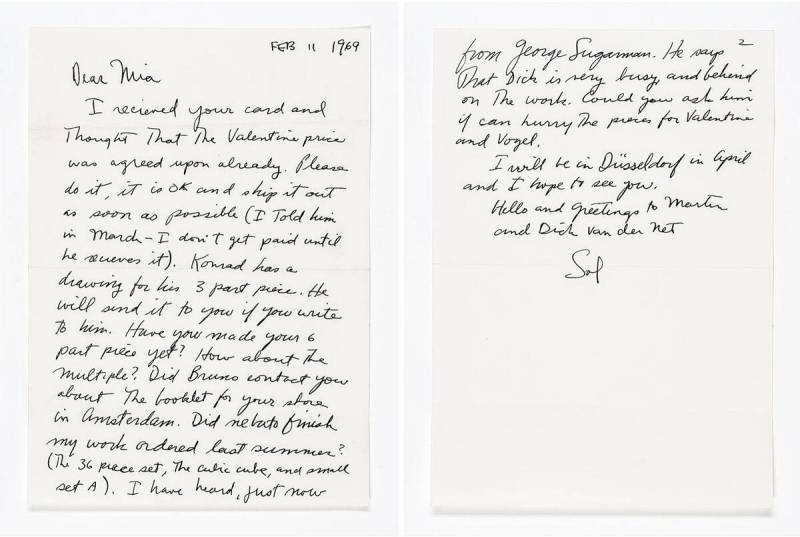 FEB 11 1969
Dear Mia
I recieved your card and
Thought That The Valentine price
was agreed upon already. Please
do it, it is OK and ship it out
as soon as possible (I Told him
in March – I don't get paid until
he recieves it). Konrad has a
drawing for his 3 part piece. He
will send it to you if you write
to him. Have you made your 6
part piece yet? How about The
multiple? Did Bruno contact you
about The booklet for your show
in Amsterdam. Did nebato finish
my work ordered last summer?
(The 36 piece set, The cubic cube, and small
set A). I have heard, just now
2
from George Sugarman. He says
That Dick is very busy, and behind
on The work. Could you ask him
if can hurry The pieces for Valentine
and Vogel.
I will be in Düsseldorf in April
and I hope to see you.
Hello and greetings to Martin
and Dick van der Net
Sol